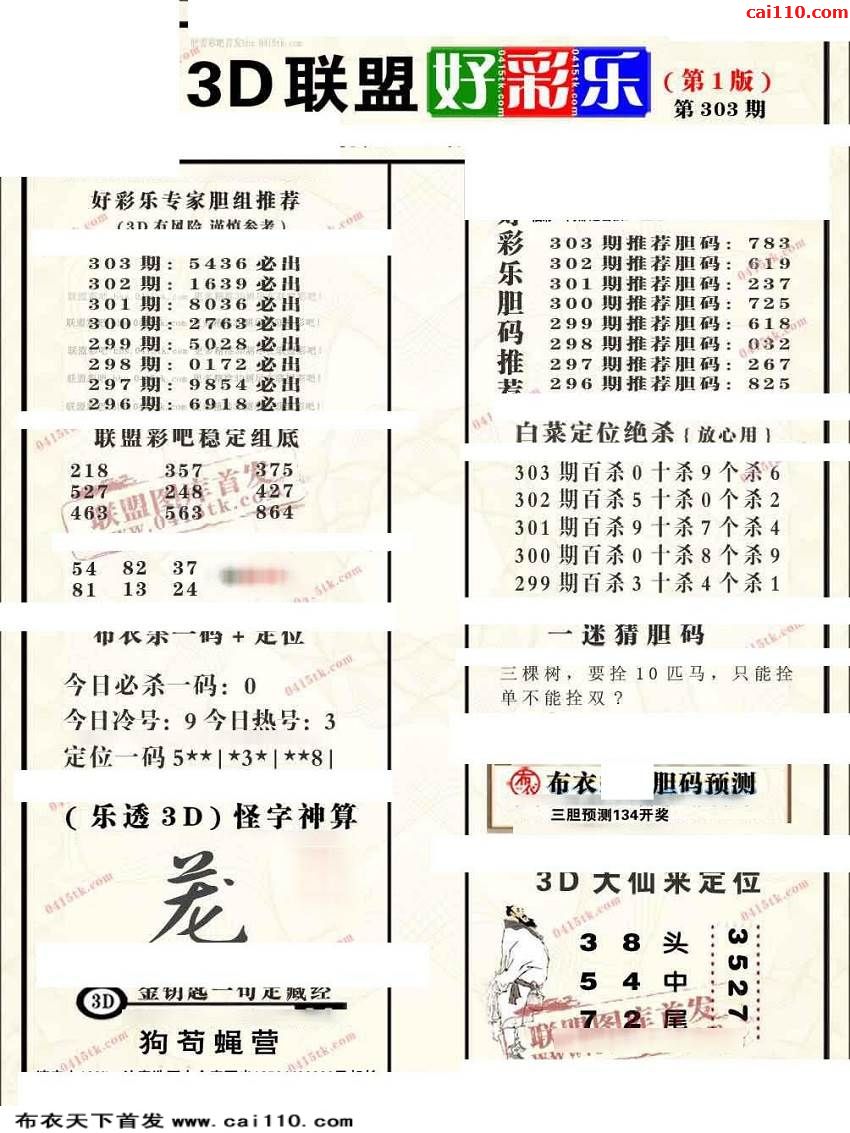 cai110.com
3D联盟好彩乐
(第1版)
第303期
好彩乐专家胆组推荐
(3D有风险 谨慎参考)
303期：5436必出
302期：1639必出
301期：8036必出
300期：2763必出
299期：5028必出
298期：0172必出
297期：9854必出
296期：6918必出
联盟彩吧稳定组底
218 357 375
527 248 427
463 563 864
54 82 37
81 13 24
布衣杀一码+定位
今日必杀一码：0
今日冷号：9 今日热号：3
定位一码5**|*3*|**8|
(乐透3D)怪字神算
茏
3D 金钥匙一句定藏经
狗苟蝇营
好彩乐胆码推荐
303期推荐胆码：783
302期推荐胆码：619
301期推荐胆码：237
300期推荐胆码：725
299期推荐胆码：618
298期推荐胆码：032
297期推荐胆码：267
296期推荐胆码：825
白菜定位绝杀{放心用}
303期百杀0十杀9个杀6
302期百杀5十杀0个杀2
301期百杀9十杀7个杀4
300期百杀0十杀8个杀9
299期百杀3十杀4个杀1
一迷猜胆码
三棵树，要拴10匹马，只能拴
单不能拴双？
布衣 胆码预测
三胆预测134开奖
3D大仙来定位
3 8 头
5 4 中
7 2 尾
3527
联盟图库首发
www.0415tk.com
0415tk.com
布衣天下首发 www.cai110.com